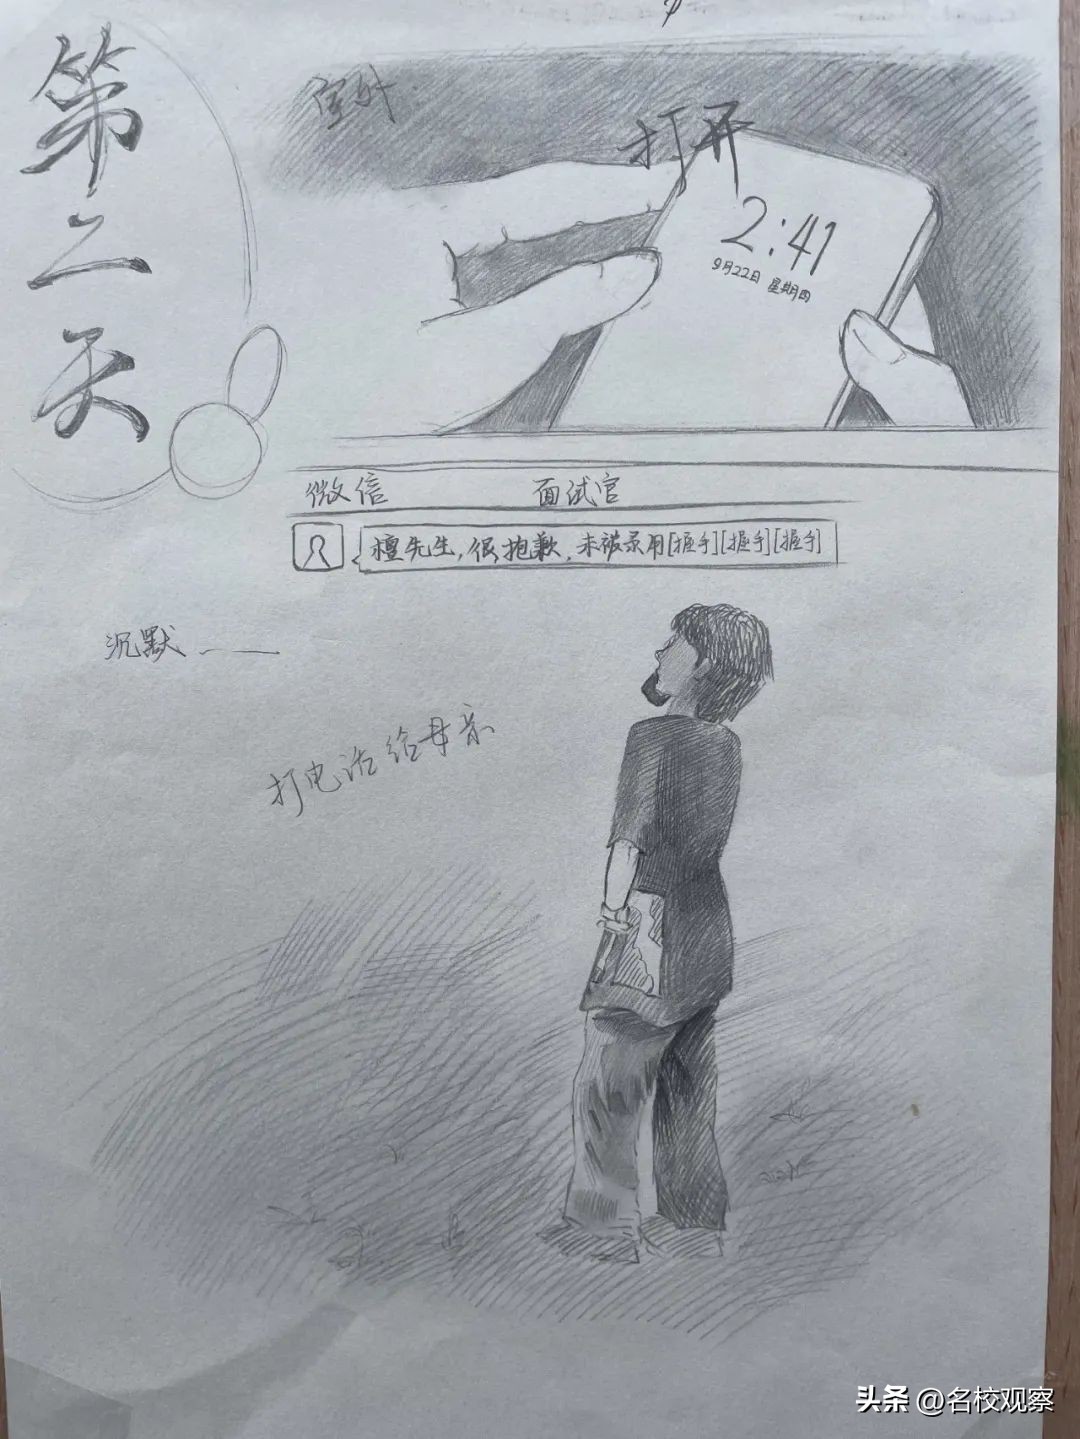 第二天
室外
打开
2:41
9月22日 星期四
微信 面试官
檀先生，很抱歉，未被录用[握手][握手][握手]
沉默——
打电话给母亲
头条 @名校观察